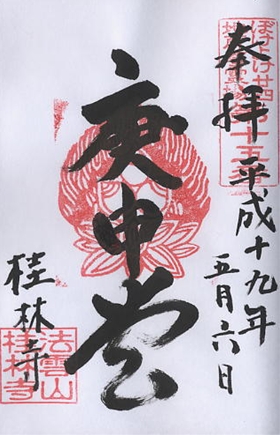 奉拝
平成十九年
五月六日
庚申堂
桂林寺
法雲山
桂林寺